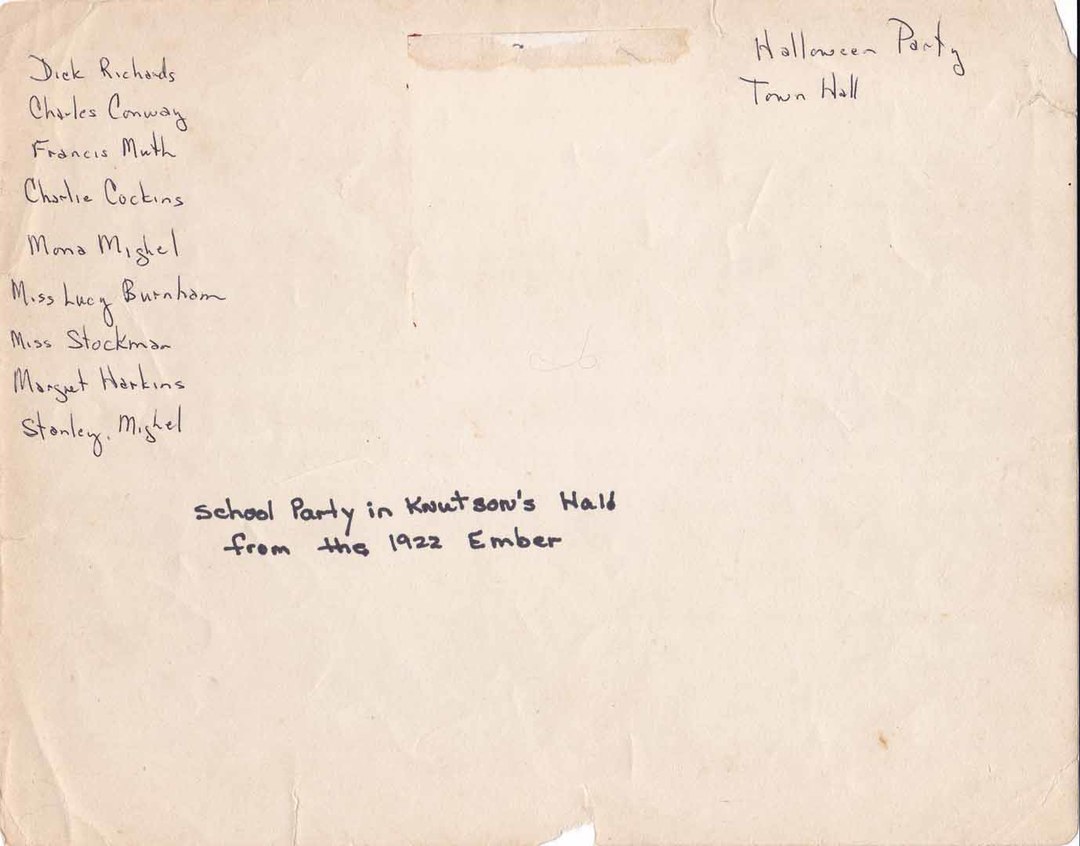 Dick Richards
Charles Conway
Francis Muth
Charlie Cockins
Mona Mighel
Miss Lucy Burnham
Miss Stockman
Margret Harkins
Stanley, Mighel
Halloween Party
Town Hall
School Party in Knutson's Hall
from the 1922 Ember